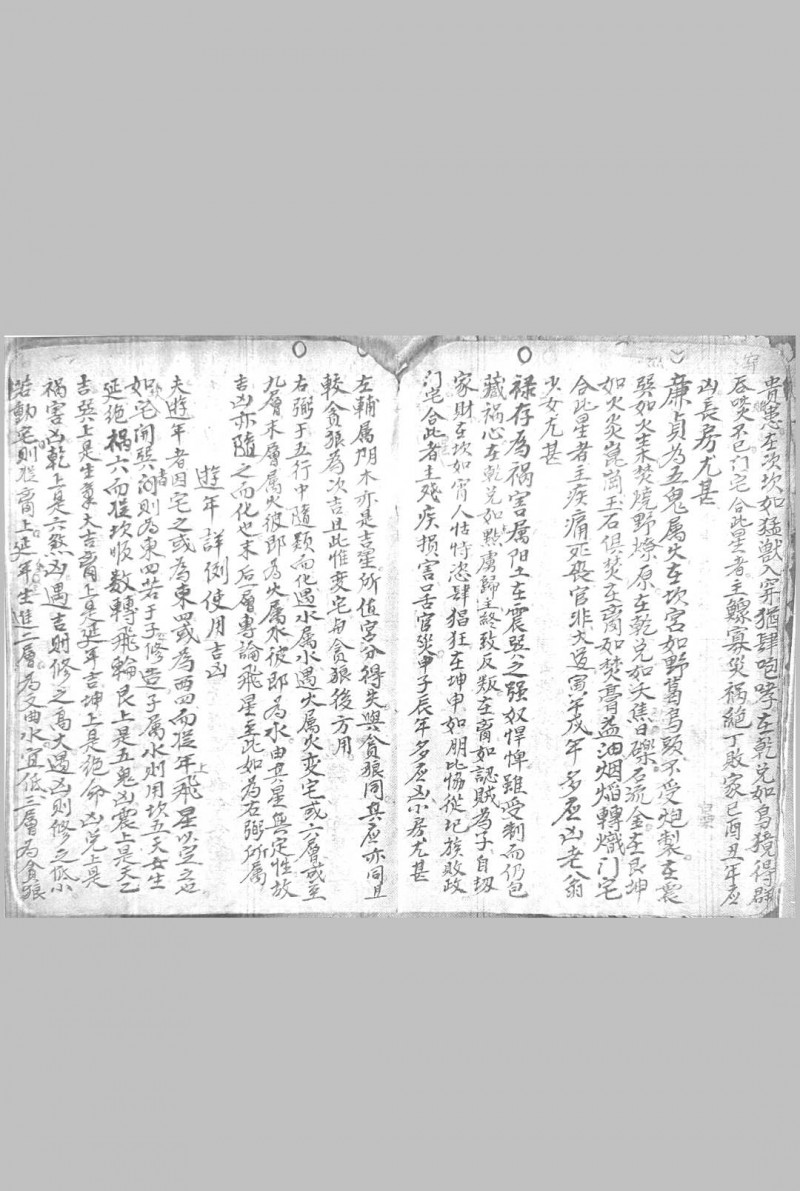 貴患在次坎如猛獣入穽猶肆咆哮在乾兑如鳥獍得群
唇啖不已门宅合此星者主鰥寡災祸絶丁敗家巳酉丑年应
凶長房尤甚
亷貞为五鬼属火在坎宫如野葛烏頭不受炮製在震
巽如火来焚燒野燎原在乾兑如天焦日礫石流金在艮坤
如火炎崑崗玉石俱焚在离如焚膏益油烟焰轉熾门宅
合此星者主疾痛死丧官非火盗寅午戌年多应凶老翁
少女尤甚
禄存为祸害属阳土在震巽之强奴悍婢雖受制而仍包
藏祸心在乾兑如黠虜歸主終致反叛在离如認賊为子自刼
家财在坎如宵人怙恃恣肆猖狂在坤申如朋比恊從圮族敗政
门宅合此者主残疾损害吕官災申子辰年多应凶小房尤甚
左輔属阴木亦是吉星所值字分得失與貪狼同其应亦同且
較貪狼为次吉且此惟变宅与貪狼後方用
右弼于五行中随類而化遇水属水遇火属火变宅或六層或至
九層末層属火彼即为火属水彼即为水由其星無定性故
吉凶亦随之而化也末后層專論飛星至此如为右弼所属
遊年詳例使用吉凶
夫遊年者因宅之或为東四或为西四而從年上飛星以定之也
如宅開巽门則为東四若于子修造子属水則用坎五天女生
延绝祸六而從坎順数轉飛輪艮上是五鬼凶震上是天乙
吉巽上是生氣大吉离上是延年吉坤上是绝命凶兑上是
祸害凶乾上是六煞凶遇吉則修之高大遇凶則修之低小
若動宅則從离上延年生進二層为文曲水宜低三層为貪狼